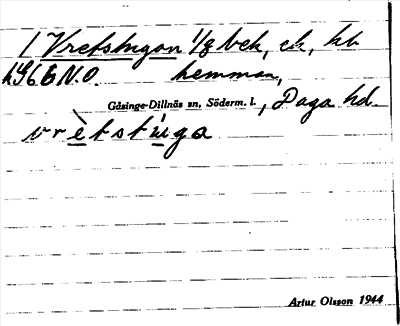 1 Vretstugan 1/8 bek, ek, kb
h456 B N.O. hemman,
Gåsinge-Dillnäs sn, Söderm. l., Daga hd
vrètstúga
Artur Olsson 1944